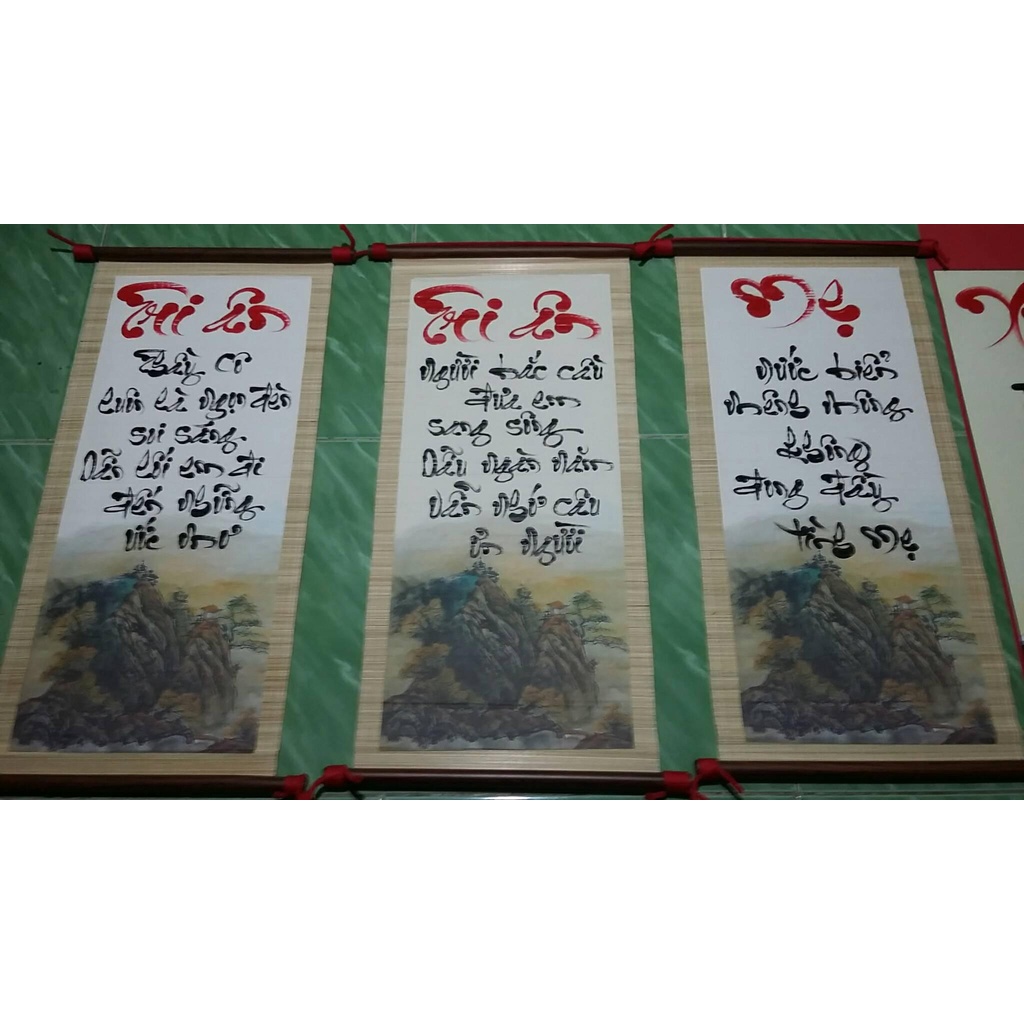 Tri ân
Thầy cô
luôn là ngọn đèn
soi sáng
Dẫn lối em đi
đến những
ước mơ
Tri ân
Người bắc cầu
đưa em
sang sông
Dẫu ngàn năm
vẫn nhớ câu
ơn người
Mẹ
Nước biển
mênh mông
không
đong đầy
tình mẹ